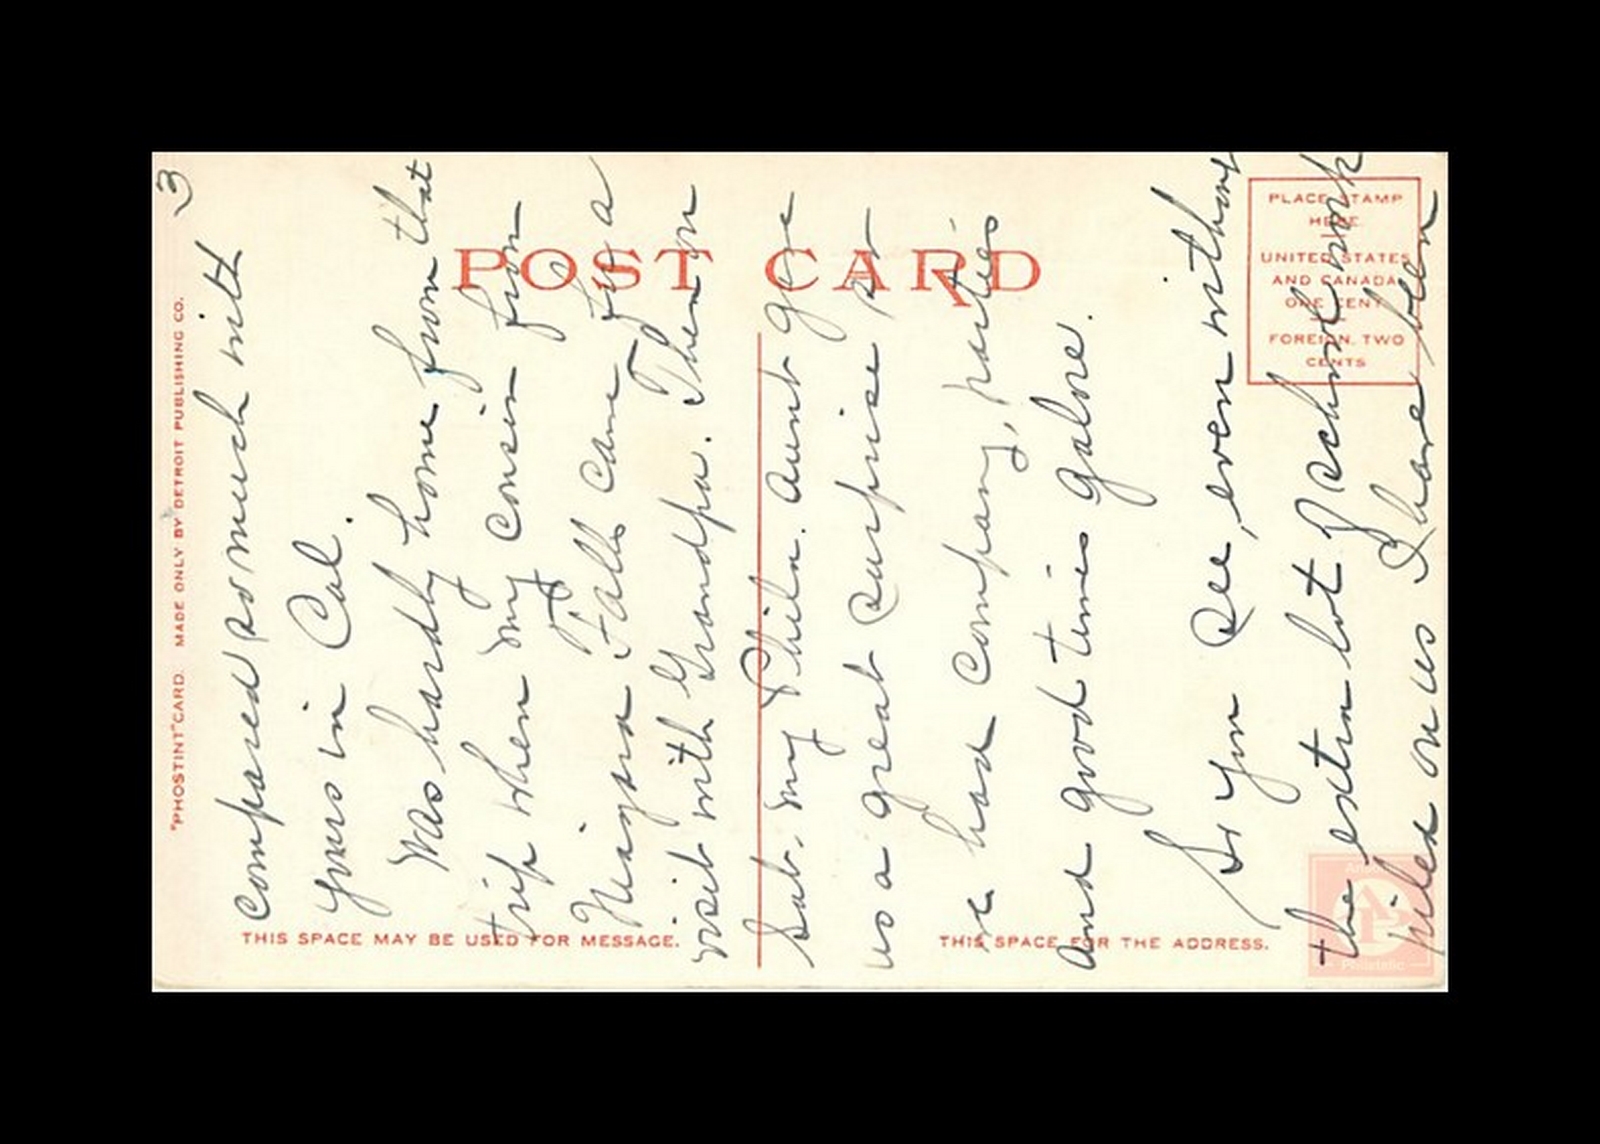 3
compared so much with
yours in Cal.
Was hardly home from that
trip when my cousin from
Niagara Falls, N.Y. came for a
visit with Grandpa. Then on
Sat. my Phila. Aunt gave
us a great surprise so
we had company, parties
and good times galore.
So you see, even without
the extra lot of school work
piled on us I have been
POST CARD
THIS SPACE MAY BE USED FOR MESSAGE.
THIS SPACE FOR THE ADDRESS.
"PHOSTINT" CARD. MADE ONLY BY DETROIT PUBLISHING CO.
PLACE STAMP
HERE.
UNITED STATES
AND CANADA
ONE CENT
FOREIGN, TWO
CENTS
Philatelic